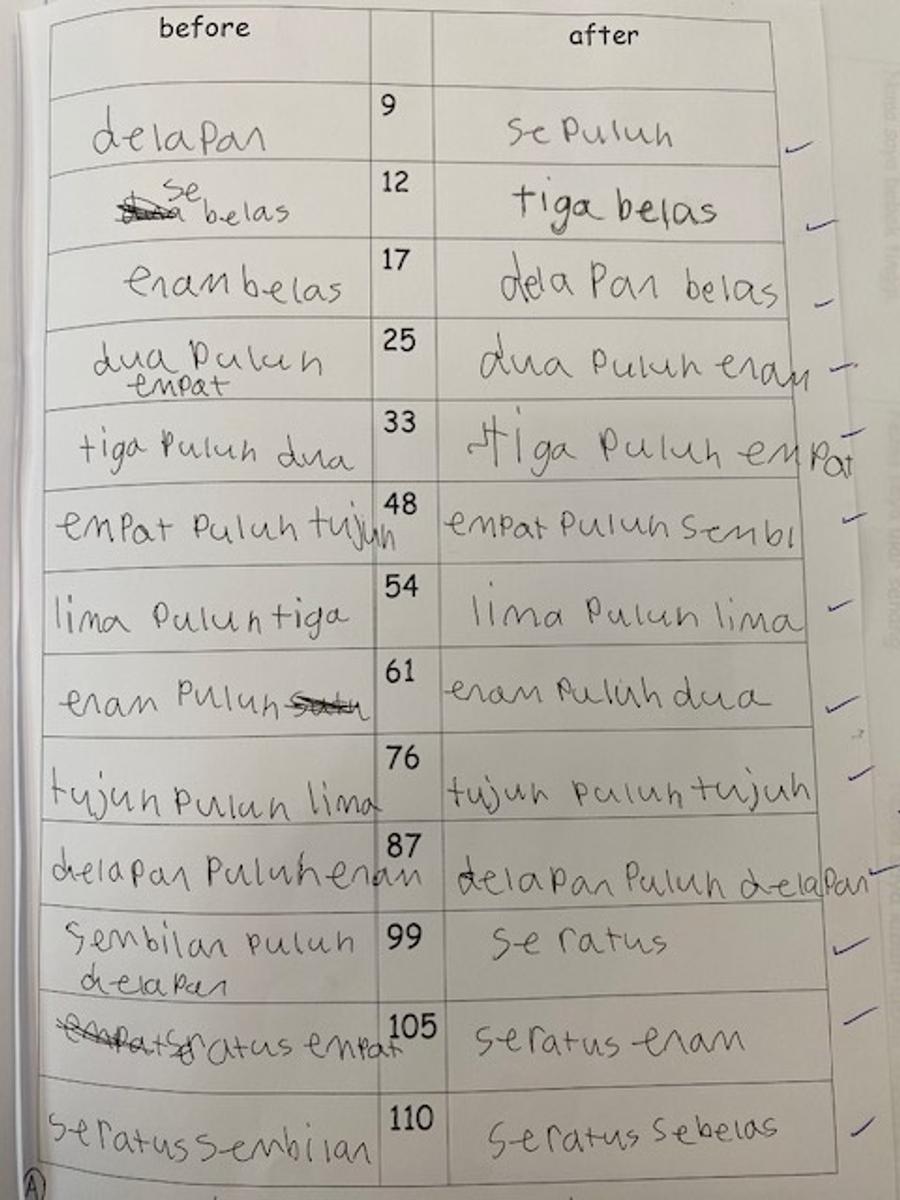 before after
delapan 9 sepuluh
se
belas 12 tiga belas
enam belas 17 delapan belas
dua puluh 25 dua puluh enam
empat
tiga puluh dua 33 tiga puluh empat
empat puluh tujuh 48 empat puluh sembi
lima puluh tiga 54 lima puluh lima
enam puluh 61 enam puluh dua
tujuh puluh lima 76 tujuh puluh tujuh
delapan puluh enam 87 delapan puluh delapan
sembilan puluh 99 se ratus
delapan
seratus empat 105 seratus enam
seratus sembilan 110 seratus sebelas
A